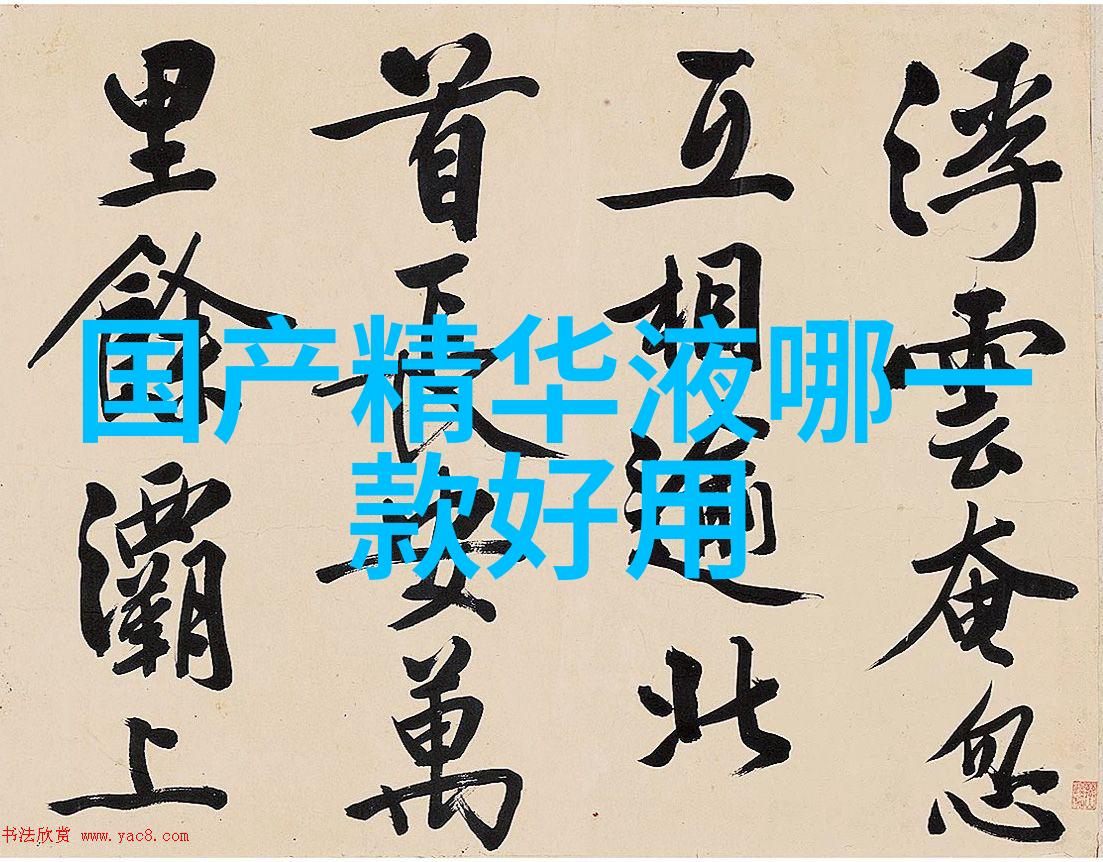 浮雲奄忽
互相逾北
首長安萬
里餘灞上
国产精华液哪一
款好用
书法欣赏 www.yac8.com